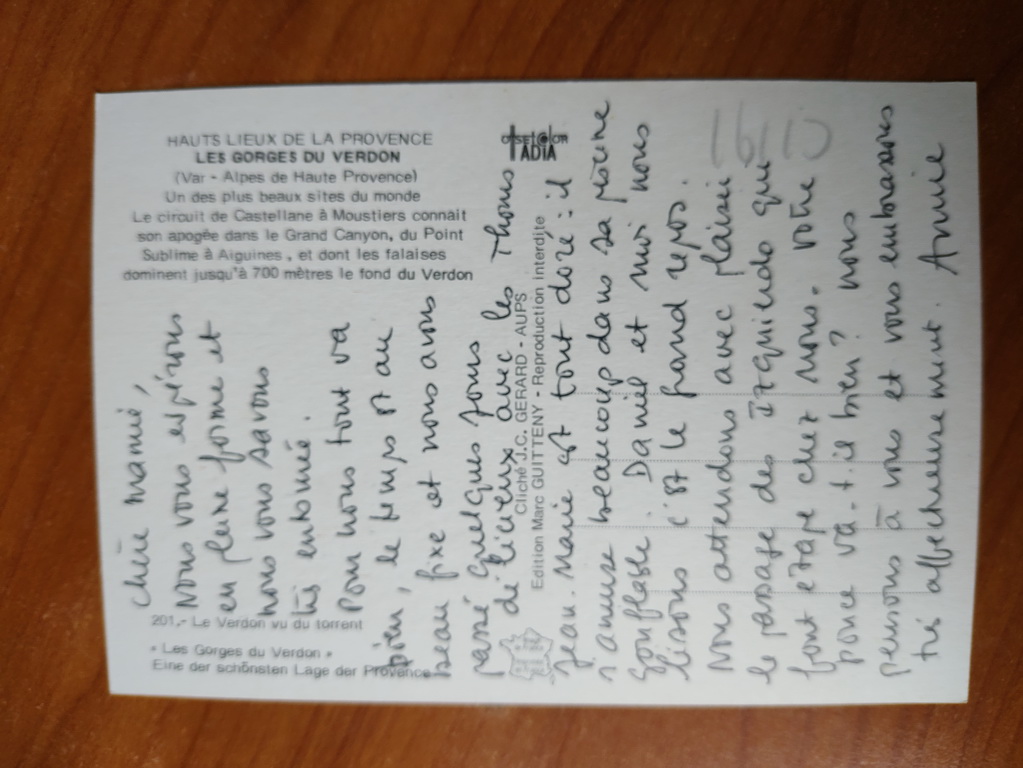 HAUTS LIEUX DE LA PROVENCE
LES GORGES DU VERDON
(Var - Alpes de Haute Provence)
Un des plus beaux sites du monde
Le circuit de Castellane à Moustiers connait
son apogée dans le Grand Canyon, du Point
Sublime à Aiguines, et dont les falaises
dominent jusqu'à 700 mètres le fond du Verdon
201,- Le Verdon vu du torrent
« Les Gorges du Verdon »
Eine der schönsten Lage der Provence
Cliché J.C. GERARD - AUPS
Edition Marc GUITTENY - Reproduction interdite
ADIA
16/10
Chère mamie,
Nous vous espérons
en pleine forme et
nous vous savons
très entourée.
Pour nous tout va
bien, le temps est au
beau fixe et nous avons
passé quelques jours
délicieux avec les Thous
Jean-Marie est tout doré : il
s'amuse beaucoup dans sa piscine
gonflable. Daniel et moi nous
lisons c'est le grand repos.
Nous attendons avec plaisir
le passage des Izquierdo qui
font étape chez nous. Votre
pouce va-t-il bien? nous
pensons à vous et vous embrassons
très affectueusement. Annie